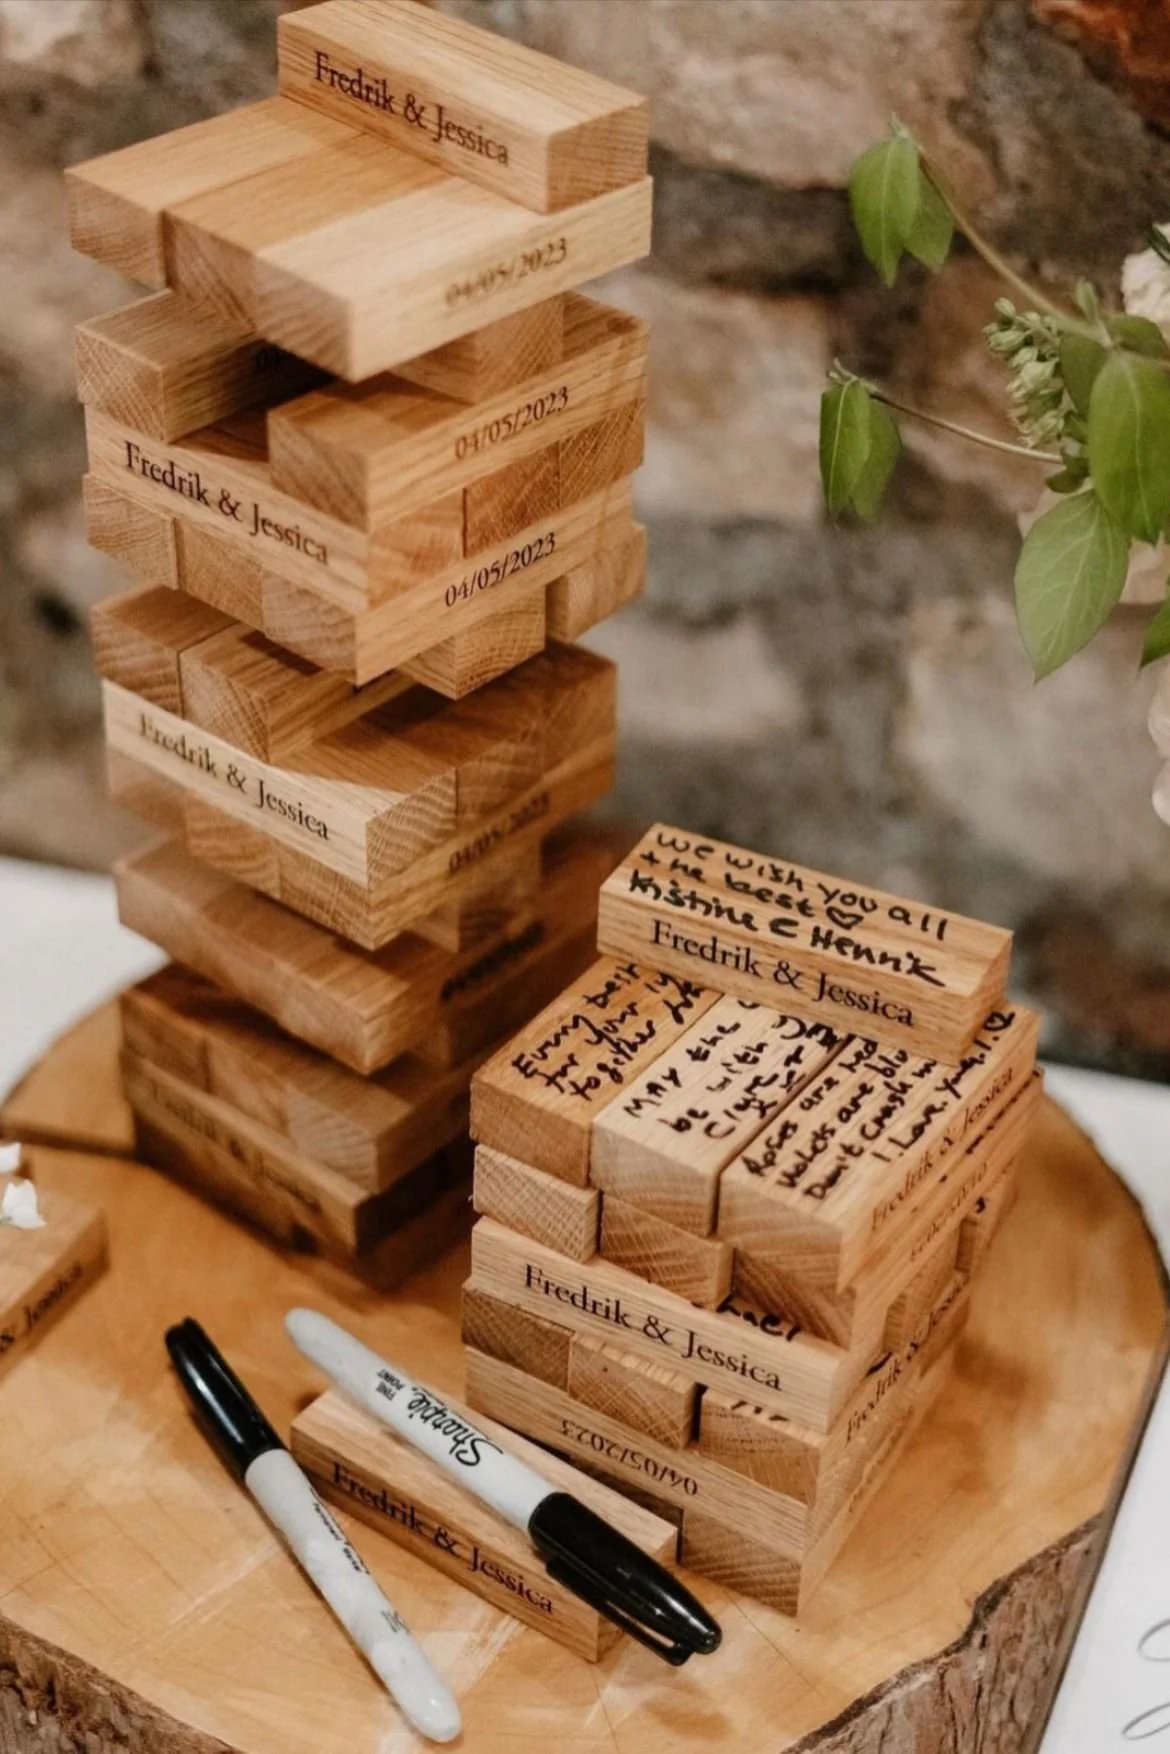 Fredrik & Jessica
04/05/2023
04/05/2023
Fredrik & Jessica
04/05/2023
Fredrik & Jessica
04/05/2023
we wish you all
the best ♡
Kristine & Henrik
Fredrik & Jessica
Every best
for your
together
MAY the
be with
Roses are red
Violets are blu
Don't crash
I Love
Fredrik & Jessica
Fredrik & Jessica
hael
Fredrik &
04/05/2023
FINE
POINT
Sharpie
Fredrik & Jessica
& Jessica